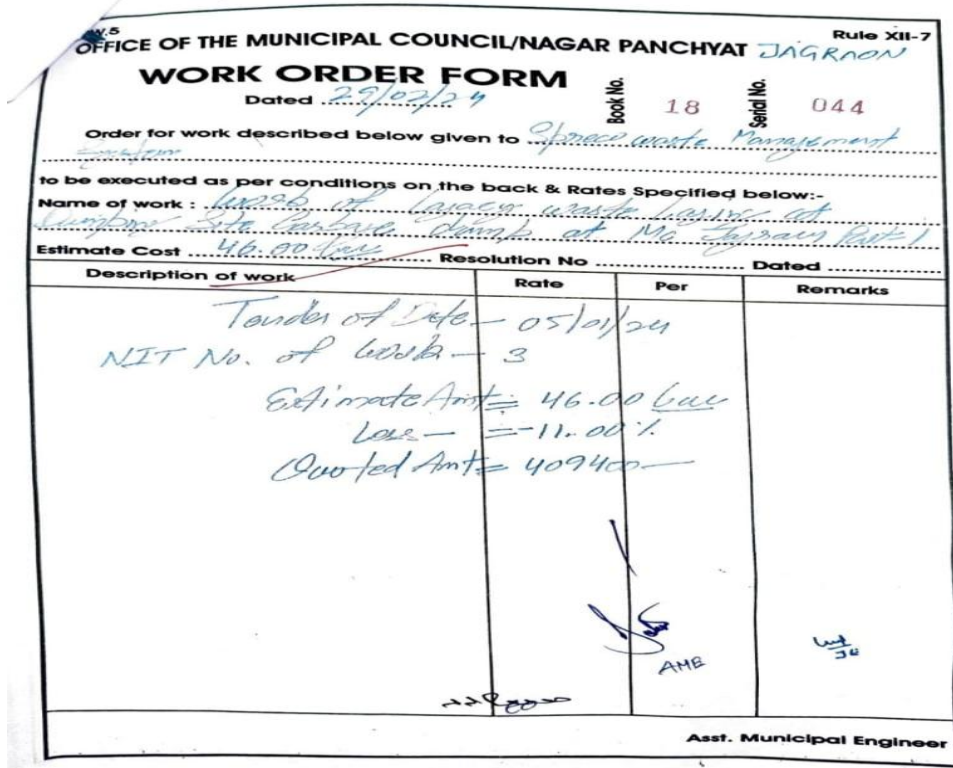 W.5
Rule XII-7
OFFICE OF THE MUNICIPAL COUNCIL/NAGAR PANCHYAT JAGRAON
WORK ORDER FORM
Dated 29/02/24
Book No. 18 Serial No. 044
Order for work described below given to Spreco waste Management
System
to be executed as per conditions on the back & Rates Specified below:-
Name of work : Work of Lagacy waste at
Dumping Site Garbage dump at Mc Jagraon Part 1
Estimate Cost 46.00 Lac Resolution No Dated
Description of work Rate Per Remarks
Tender of Date - 05/01/24
NIT No. of Work - 3
Estimate Amt = 46.00 Lac
Less - = -11.00 %
Quoted Amt = 409400
AME
JE
Asst. Municipal Engineer